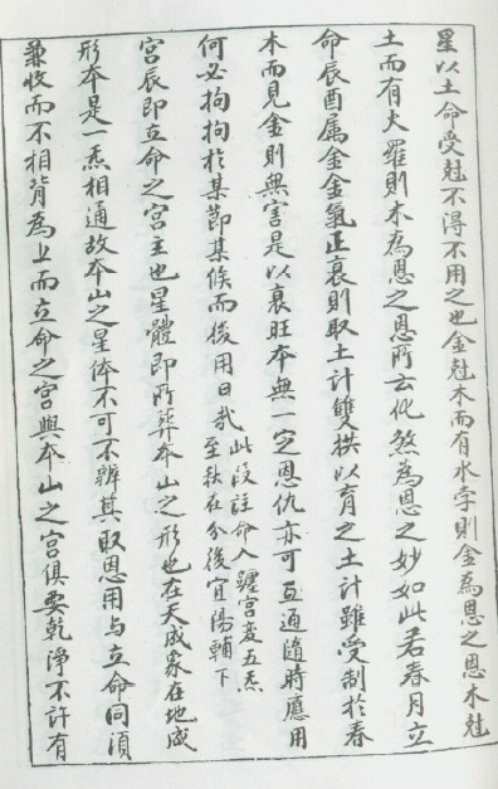 星以土命受尅不得不用之也金尅木而有水孛則金爲恩之恩木尅
土而有火羅則木爲恩之恩所云化煞爲恩之妙如此若春月立
命辰酉属金金氣正衰則取土計雙拱以育之土計雖受制於春
木而見金則無害是以衰旺本無一定恩仇亦可互通隨時應用
何必拘拘於某節某候而後用日哉此段註命入躔宮变五炁
至秋在分後宜陽輔下
宮辰即立命之宮主也星體即所葬本山之形也在天成象在地成
形本是一炁相通故本山之星体不可不辨其取恩用与立命同須
兼收而不相背爲上而立命之宮與本山之宮俱要乾淨不許有